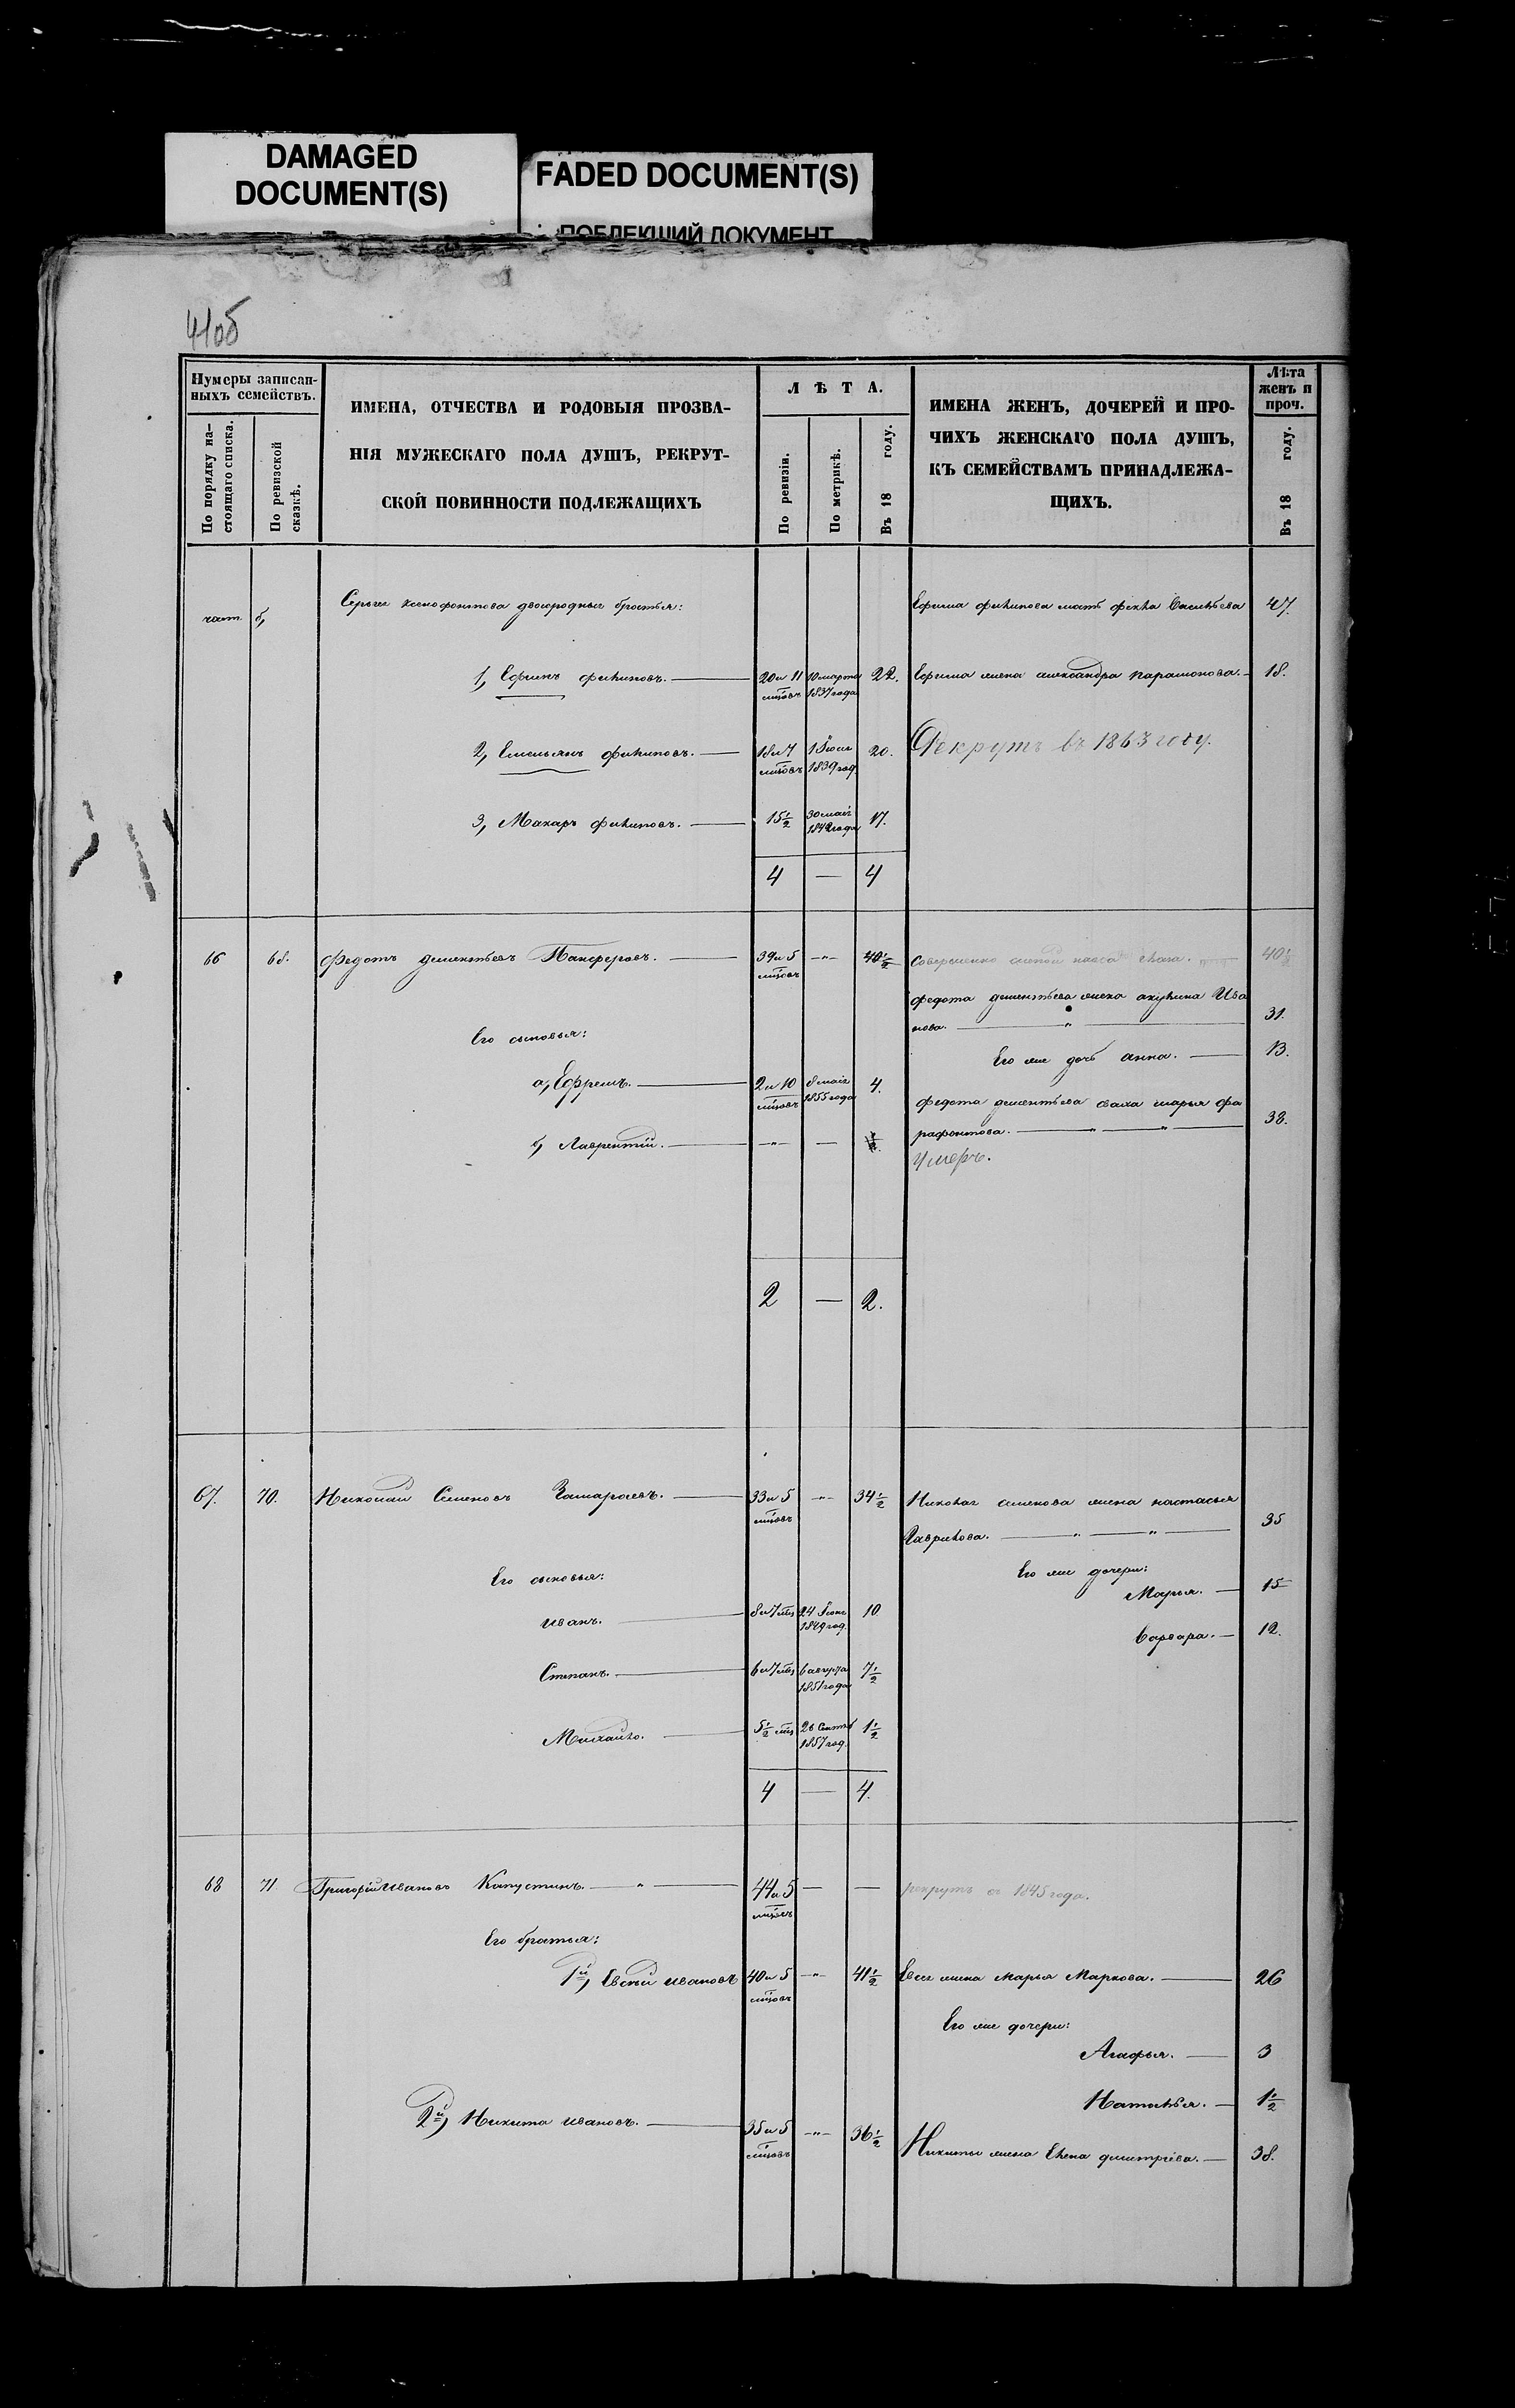 DAMAGED
DOCUMENT(S)
FADED DOCUMENT(S)
ПОБЛЕКШИЙ ДОКУМЕНТ
41об
Нумеры записан-
ныхъ семействъ.
По порядку на-
стоящаго списка.
По ревизской
сказкѣ.
ИМЕНА, ОТЧЕСТВА И РОДОВЫЯ ПРОЗВА-
НІЯ МУЖЕСКАГО ПОЛА ДУШЪ, РЕКРУТ-
СКОЙ ПОВИННОСТИ ПОДЛЕЖАЩИХЪ
ЛѢТА.
По ревизіи.
По метрикѣ.
Въ 18 году.
ИМЕНА ЖЕНЪ, ДОЧЕРЕЙ И ПРО-
ЧИХЪ ЖЕНСКАГО ПОЛА ДУШЪ,
КЪ СЕМЕЙСТВАМЪ ПРИНАДЛЕЖА-
ЩИХЪ.
Лѣта
женъ и
проч.
Въ 18 году.
Сергея Ксенофонтова двоюродныя братья:
Ефима филипова мать фекла Васильева 47.
1, Ефимъ филиповъ. 20 и 11 мцовъ 10 марта 1837 года 22. Ефима жена александра парамонова. 18.
2, Емельянъ филиповъ. 18 и 7 мцовъ 1839 год 20. Рекрутъ въ 1863 году.
3, Макаръ филиповъ. 15½ 30 маія 1842 года 17.
4 — 4
66 68. федотъ дементьевъ Панферовъ. 39 и 5 мцовъ -"- 40½ совершенно слепой глаза. 40½
федота дементьева жена акулина Ива
нова. 31.
Его сыновья:
Его же дочь анна. 13.
а, Ефремъ. 2 и 10 мцовъ 8 маія 1855 года 4.
федота дементьева сваха марья фа
рафонтова. 38.
б, Лаврентій. -"- — ½.
Умеръ.
2 — 2.
67. 70. Николай Семеновъ 33 и 5 мцовъ -"- 34½ Николая семенова жена настасья
Гаврилова. 35
Его сыновья:
Его же дочери:
Марья. 15
иванъ. 8 и 7 мцъ 24 1849 год. 10
Варвара. 12.
Степанъ. 6 и 7 мцъ 6 августа 1851 года 7½
Михайло. 5½ мцъ 26 Сентяб 1857 год. 1½
4 — 4.
68 71. Григорій Ивановъ Капустинъ. 44 и 5 мцовъ — — рекрутъ съ 1845 года.
Его братья:
1й, Евсѣй ивановъ 40 и 5 мцовъ -"- 41½ Евсея жена марья Маркова. 26
Его же дочери:
Агафья. 3
Наталья. 1½
2й, Никита ивановъ. 35 и 5 мцовъ -"- 36½
Никиты жена Елена дмитріева. 38.